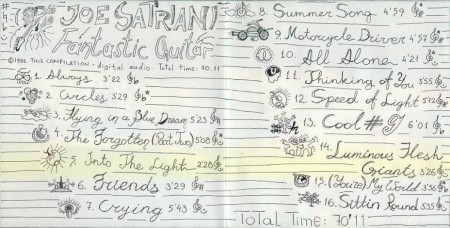 JOE SATRIANI
Fantastic Guitar
©1996 THIS COMPILATION · digital audio. Total time: 70.11
1. Always 3'22
2. Circles 3'29
3. Flying in a Blue Dream 5'23
4. The Forgotten (Part Two) 5'08
5. Into The Light 2'28
6. Friends 3'29
7. Crying 5'43
8. Summer Song 4'59
9. Motorcycle Driver 4'57
10. All Alone 4'21
11. Thinking of You 3'55
12. Speed of Light 5'12
13. Cool #9 6'01
14. Luminous Flesh
Giants 3'26
15. (You're) My World 3'56
16. Sittin Round 3'35
TOTAL TIME: 70'11